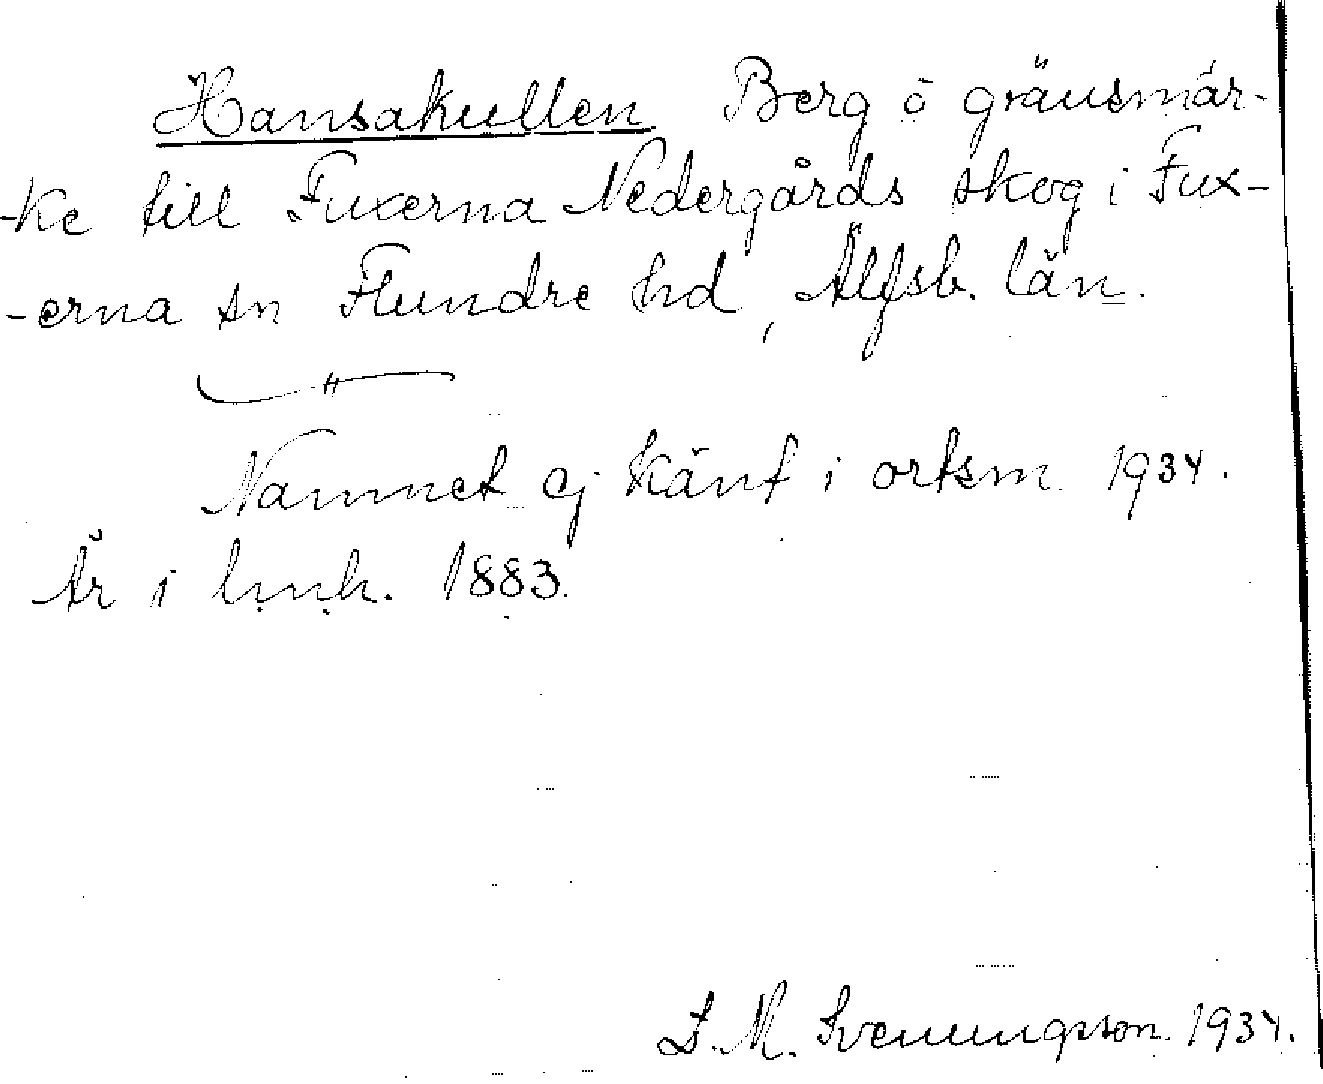 Hansakullen Berg o gränsmär-
-ke till Fuxerna Nedergårds skog i Fux-
-erna sn Flundre hd, Älfsb. län.
"
Namnet ej känt i ortsm 1934.
Är i hmk. 1883.
L. M. Svenungsson. 1934.